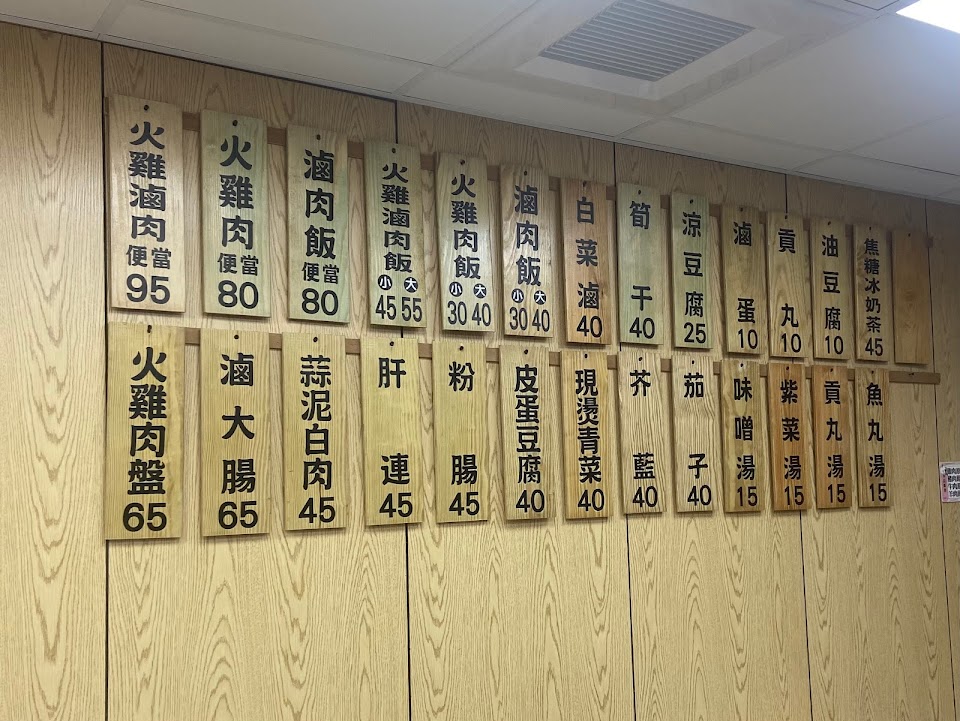 火雞滷肉便當95
火雞肉便當80
滷肉飯便當80
火雞滷肉飯小45大55
火雞肉飯小30大40
滷肉飯小30大40
白菜滷40
筍干40
涼豆腐25
滷蛋10
貢丸10
油豆腐10
焦糖冰奶茶45
火雞肉盤65
滷大腸65
蒜泥白肉45
肝連45
粉腸45
皮蛋豆腐40
現燙青菜40
芥藍40
茄子40
味噌湯15
紫菜湯15
貢丸湯15
魚丸湯15